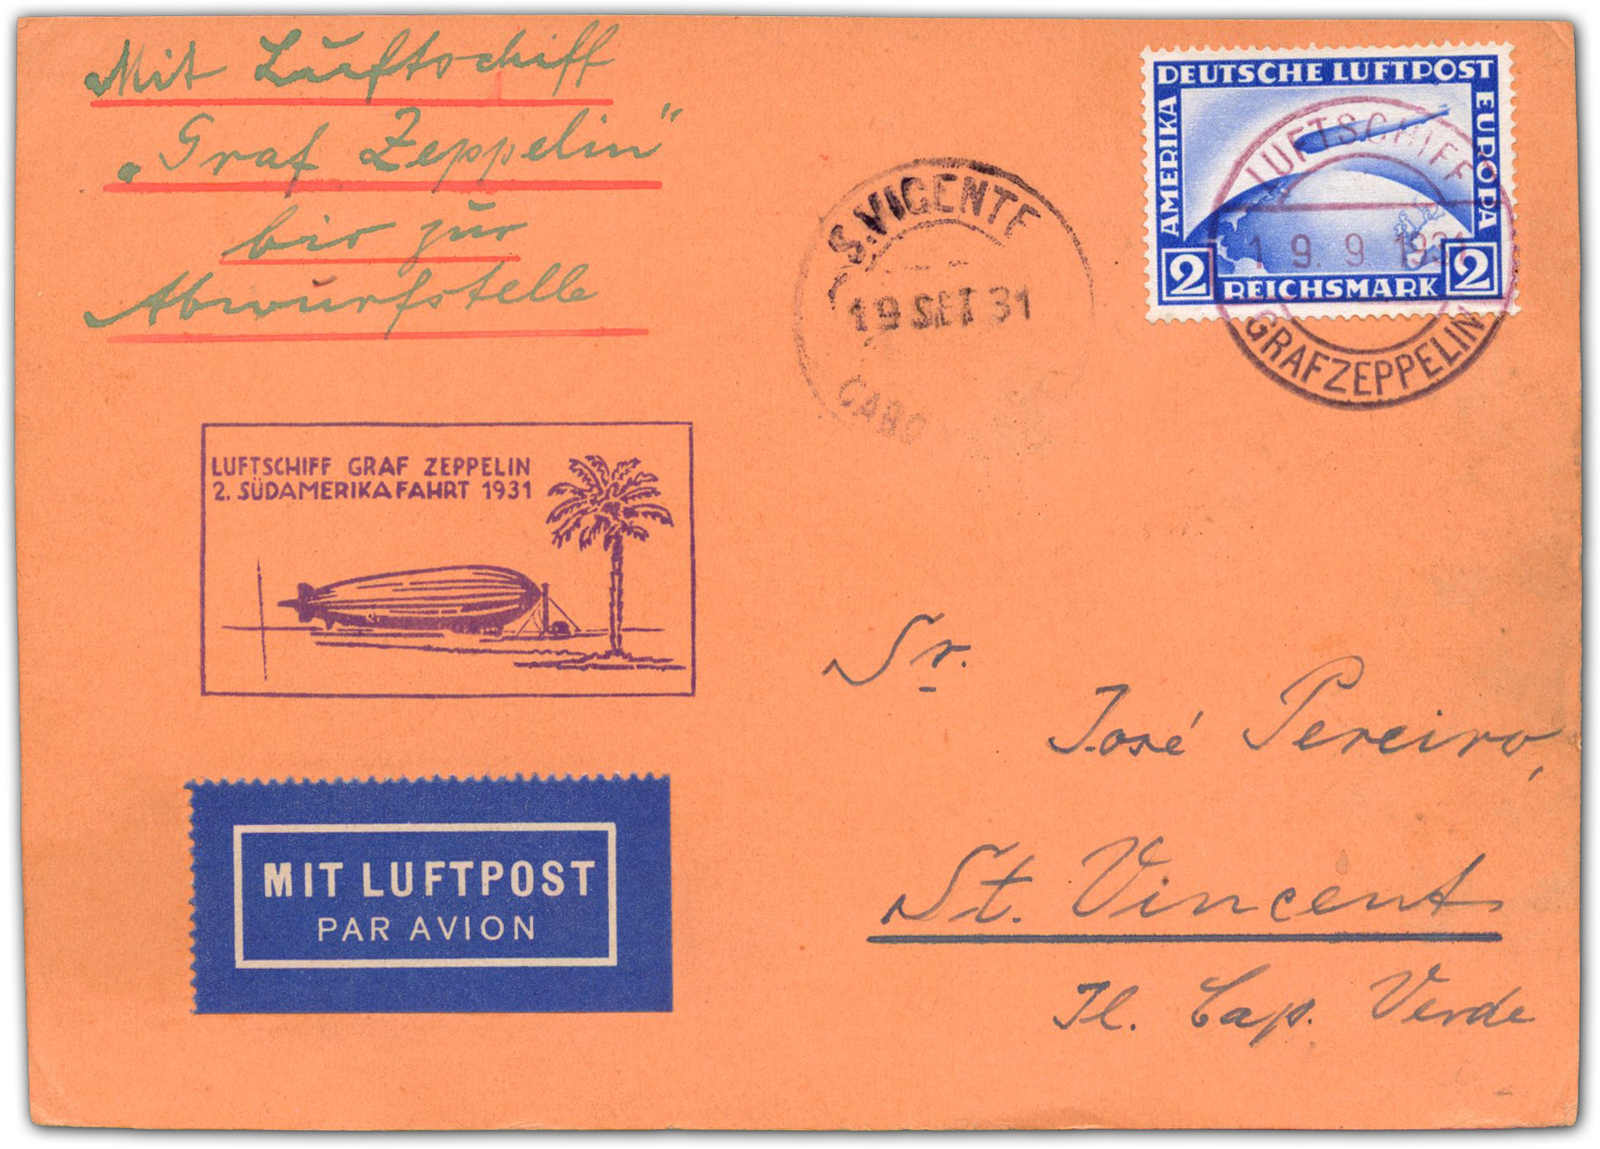 Mit Luftschiff
„Graf Zeppelin"
bis zur
Abwurfstelle
S. VICENTE
19 SET 31
CABO
DEUTSCHE LUFTPOST
AMERIKA
EUROPA
2 REICHSMARK 2
LUFTSCHIFF
19. 9. 1931
GRAF ZEPPELIN
LUFTSCHIFF GRAF ZEPPELIN
2. SÜDAMERIKAFAHRT 1931
Sr.
José Pereiro,
St. Vincent
Il. Cap. Verde
MIT LUFTPOST
PAR AVION